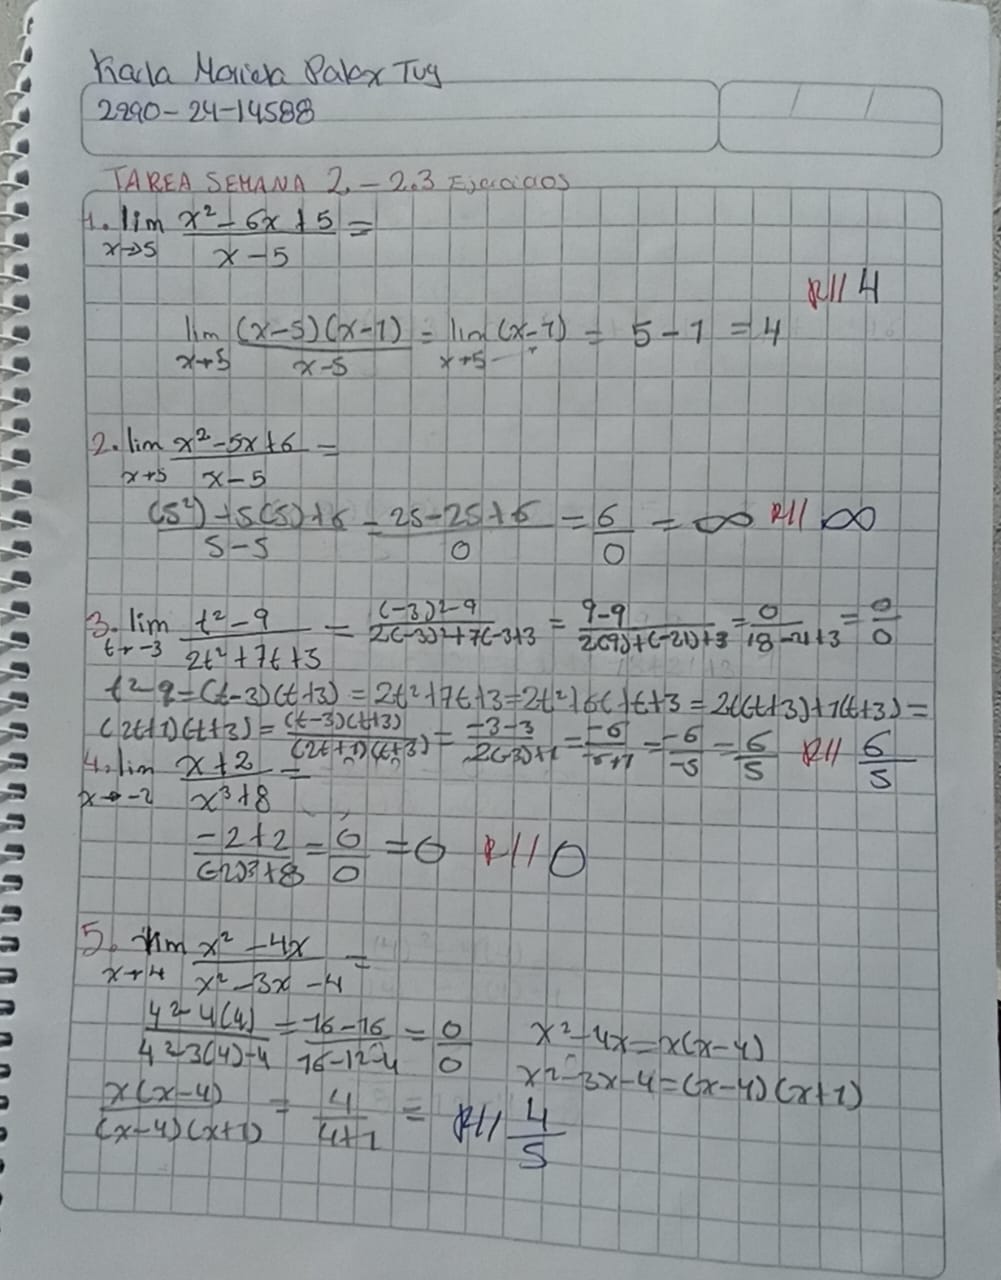 Karla Mariela Palax Tuy
2290-24-14588
TAREA SEMANA 2.-2.3 Ejercicios
1. lim x→5 (x²-6x+5)/(x-5) =
R// 4
lim x→5 ((x-5)(x-1))/(x-5) = lim x→5 (x-1) = 5-1 = 4
2. lim x→5 (x²-5x+6)/(x-5) =
((5²)-5(5)+6)/(5-5) = (25-25+6)/0 = 6/0 = ∞ R// ∞
3. lim t→-3 (t²-9)/(2t²+7t+3) = ((-3)2-9)/(2(-3)2+7(-3+3) = (9-9)/(2(9)+(-21)+3 = 0/(18-21+3) = 0/0
t²-9=(t-3)(t+3) = 2t²+7t+3=2t²+6t+t+3=2t(t+3)+1(t+3)=
(2t+1)(t+3) = ((t-3)(t+3))/((2t+1)(t+3)) = (-3-3)/(2(-3)+1) = -6/(-6+1) = -6/-5 = 6/5 R// 6/5
4. lim x→-2 (x+2)/(x³+8) =
(-2+2)/((-2)³+8) = 0/0 = 0 R// 0
5. lim x→4 (x²-4x)/(x²-3x-4) =
(4²-4(4))/(4²-3(4)-4) = (16-16)/(16-12-4) = 0/0 x²-4x=x(x-4)
x²-3x-4=(x-4)(x+1)
(x(x-4))/((x-4)(x+1)) = 4/(4+1) = R// 4/5